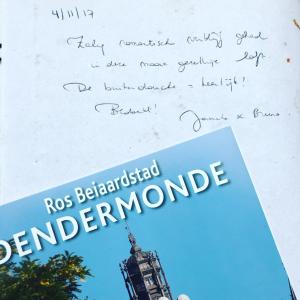 4/11/17
Zalig romantisch verblijf gehad
in deze mooie gezellige loft.
De buitendouche = heerlijk!
Bedankt!
Bruno
Ros Beiaardstad
DENDERMONDE